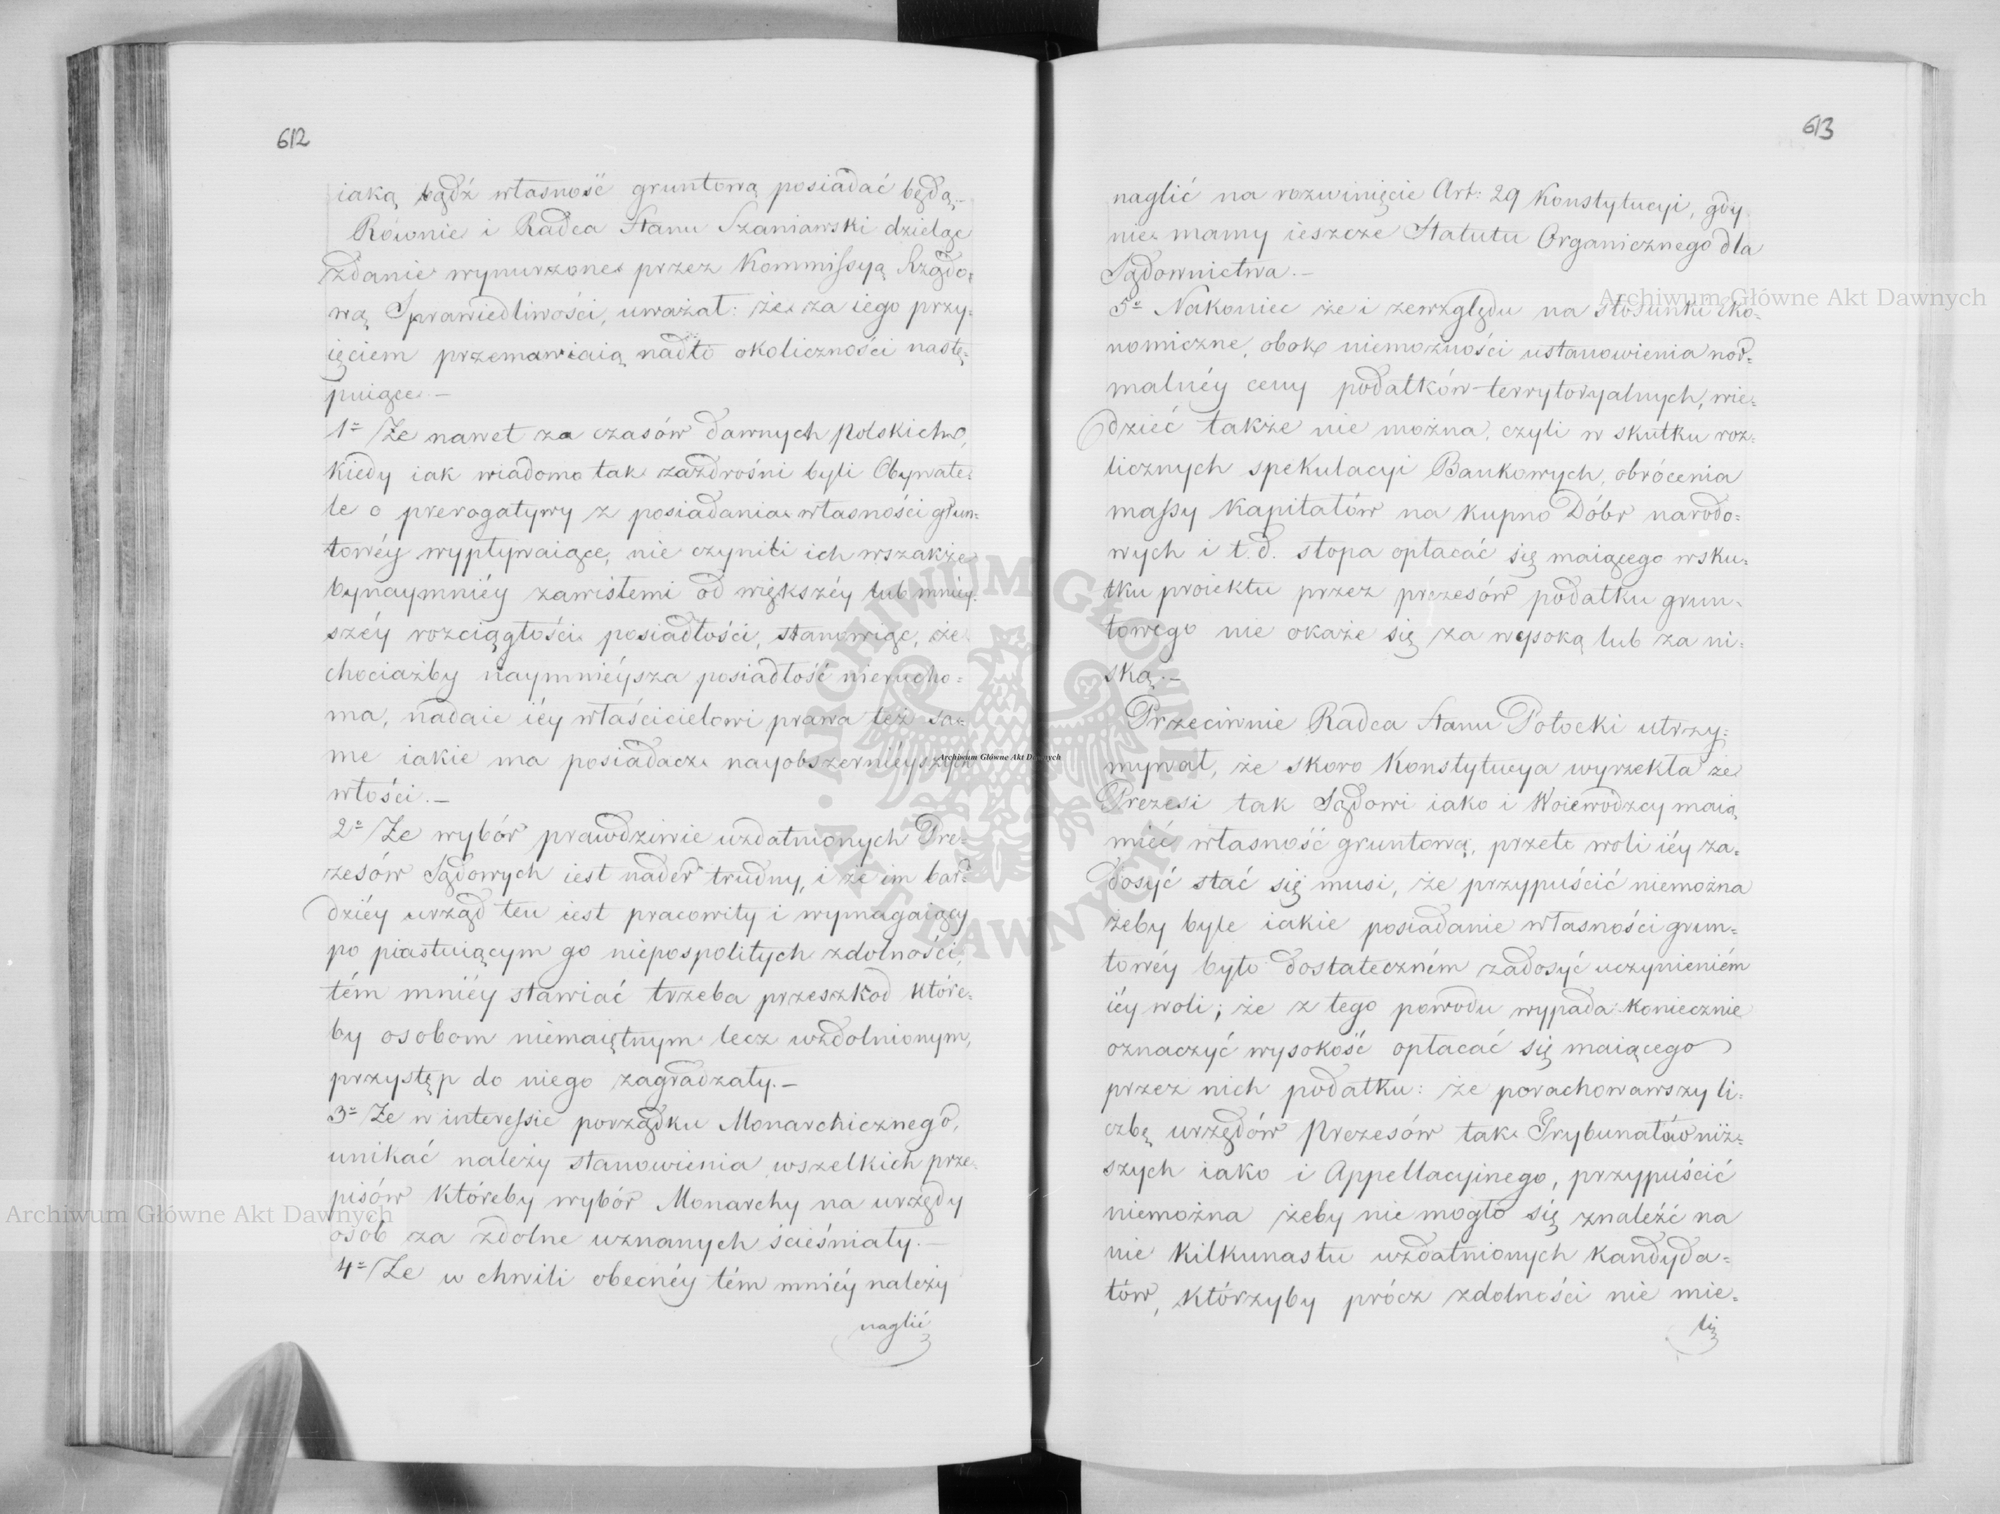 612
iaką bądź własność gruntową posiadać będą.-
Równie i Radca Stanu Szaniawski dzieląc
zdanie wynurzone przez Kommissyą Rządo-
wą Sprawiedliwości, uważał: że za iego przy-
ięciem przemawiaią nadto okoliczności nastę-
puiące.-
1º Że nawet za czasów dawnych polskich,
kiedy iak wiadomo tak zazdrośni byli Obywate-
le o prerogatywy z posiadania własności grun-
towéy wypływaiące, nie czynili ich wszakże
bynaymniéy zawisłemi od większéy lub mniey-
széy rozciągłości posiadłości, stanowiąc, że
chociażby naymniéysza posiadłość nierucho-
ma, nadaie iéy właścicielowi prawa też sa-
me iakie ma posiadacz nayobszernieyszych
włości.-
2º Że wybór prawdziwie uzdatnionych Pre-
zesów Sądowych iest nader trudny, i że im bar-
dziéy urząd ten iest pracowity i wymagaiący
po piastuiącym go niepospolitych zdolności,
tém mniéy stawiać trzeba przeszkod które-
by osobom niemaiętnym lecz uzdolnionym,
przystęp do niego zagradzały.-
3º Że w interessie porządku Monarchicznego,
unikać należy stanowienia wszelkich prze-
pisów któreby wybór Monarchy na urzędy
osób za zdolne uznanych ścieśniały.-
4º Że w chwili obecnéy tém mniéy należy
naglić
613
naglić na rozwinięcie Art: 29 Konstytucyi, gdy
nie mamy ieszcze Statutu Organicznego dla
Sądownictwa.-
5º Nakoniec że i zewzględu na stosunki Eko-
nomiczne, obok niemożności ustanowienia nor-
malnéy ceny podatków territoryalnych, wie-
dzieć także nie można, czyli w skutku roz-
licznych spekulacyi Bankowych, obrócenia
massy kapitałów na kupno Dóbr narodo-
wych i t.d. stopa opłacać się maiącego wsku-
tku proiektu przez prezesów podatku grun-
towego nie okaże się za wysoką lub za ni-
ską.-
Przeciwnie Radca Stanu Potocki utrzy-
mywał, że skoro Konstytucya wyrzekła że
Prezesi tak Sądowi iako i Woiewódzcy maią
mieć własność gruntową, przeto woli iéy za-
dosyć stać się musi, że przypuścić niemożna
żeby byle iakie posiadanie własności grun-
towéy było dostateczném zadosyć uczynieniém
iéy woli; że z tego powodu wypada koniecznie
oznaczyć wysokość opłacać się maiącego
przez nich podatku: że porachowawszy li-
czbę urzędów Prezesów tak Trybunałów niż-
szych iako i Appellacyinego, przypuścić
niemożna żeby nie mogło się znaleźć na
nie kilkunastu uzdatnionych kandyda-
tów, którzyby prócz zdolności nie mie-
li
Archiwum Główne Akt Dawnych
Archiwum Główne Akt Dawnych
Archiwum Główne Akt Dawnych
ARCHIWUM GŁÓWNE AKT DAWNYCH